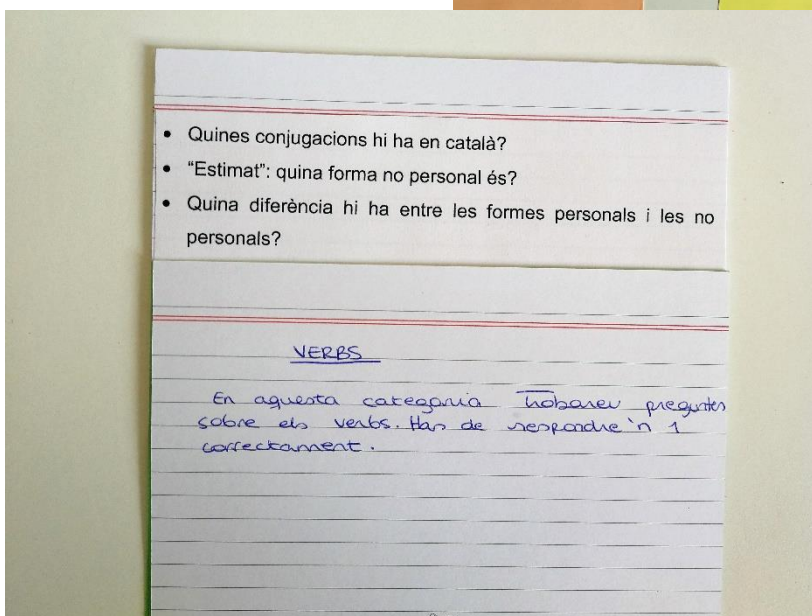 • Quines conjugacions hi ha en català?
• “Estimat”: quina forma no personal és?
• Quina diferència hi ha entre les formes personals i les no
personals?
VERBS
En aquesta categoria trobareu preguntes
sobre els verbs. Has de respondre'n 1
correctament.